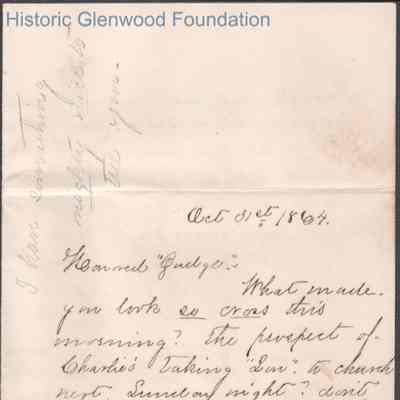 Historic Glenwood Foundation
I have something
mighty nice to
tell you.
Oct 31st, 1864.
Honored "Judge".
What made
you look so cross this
morning? The prospect of
Charlie's taking "Lou" to church
next Sunday night? don't